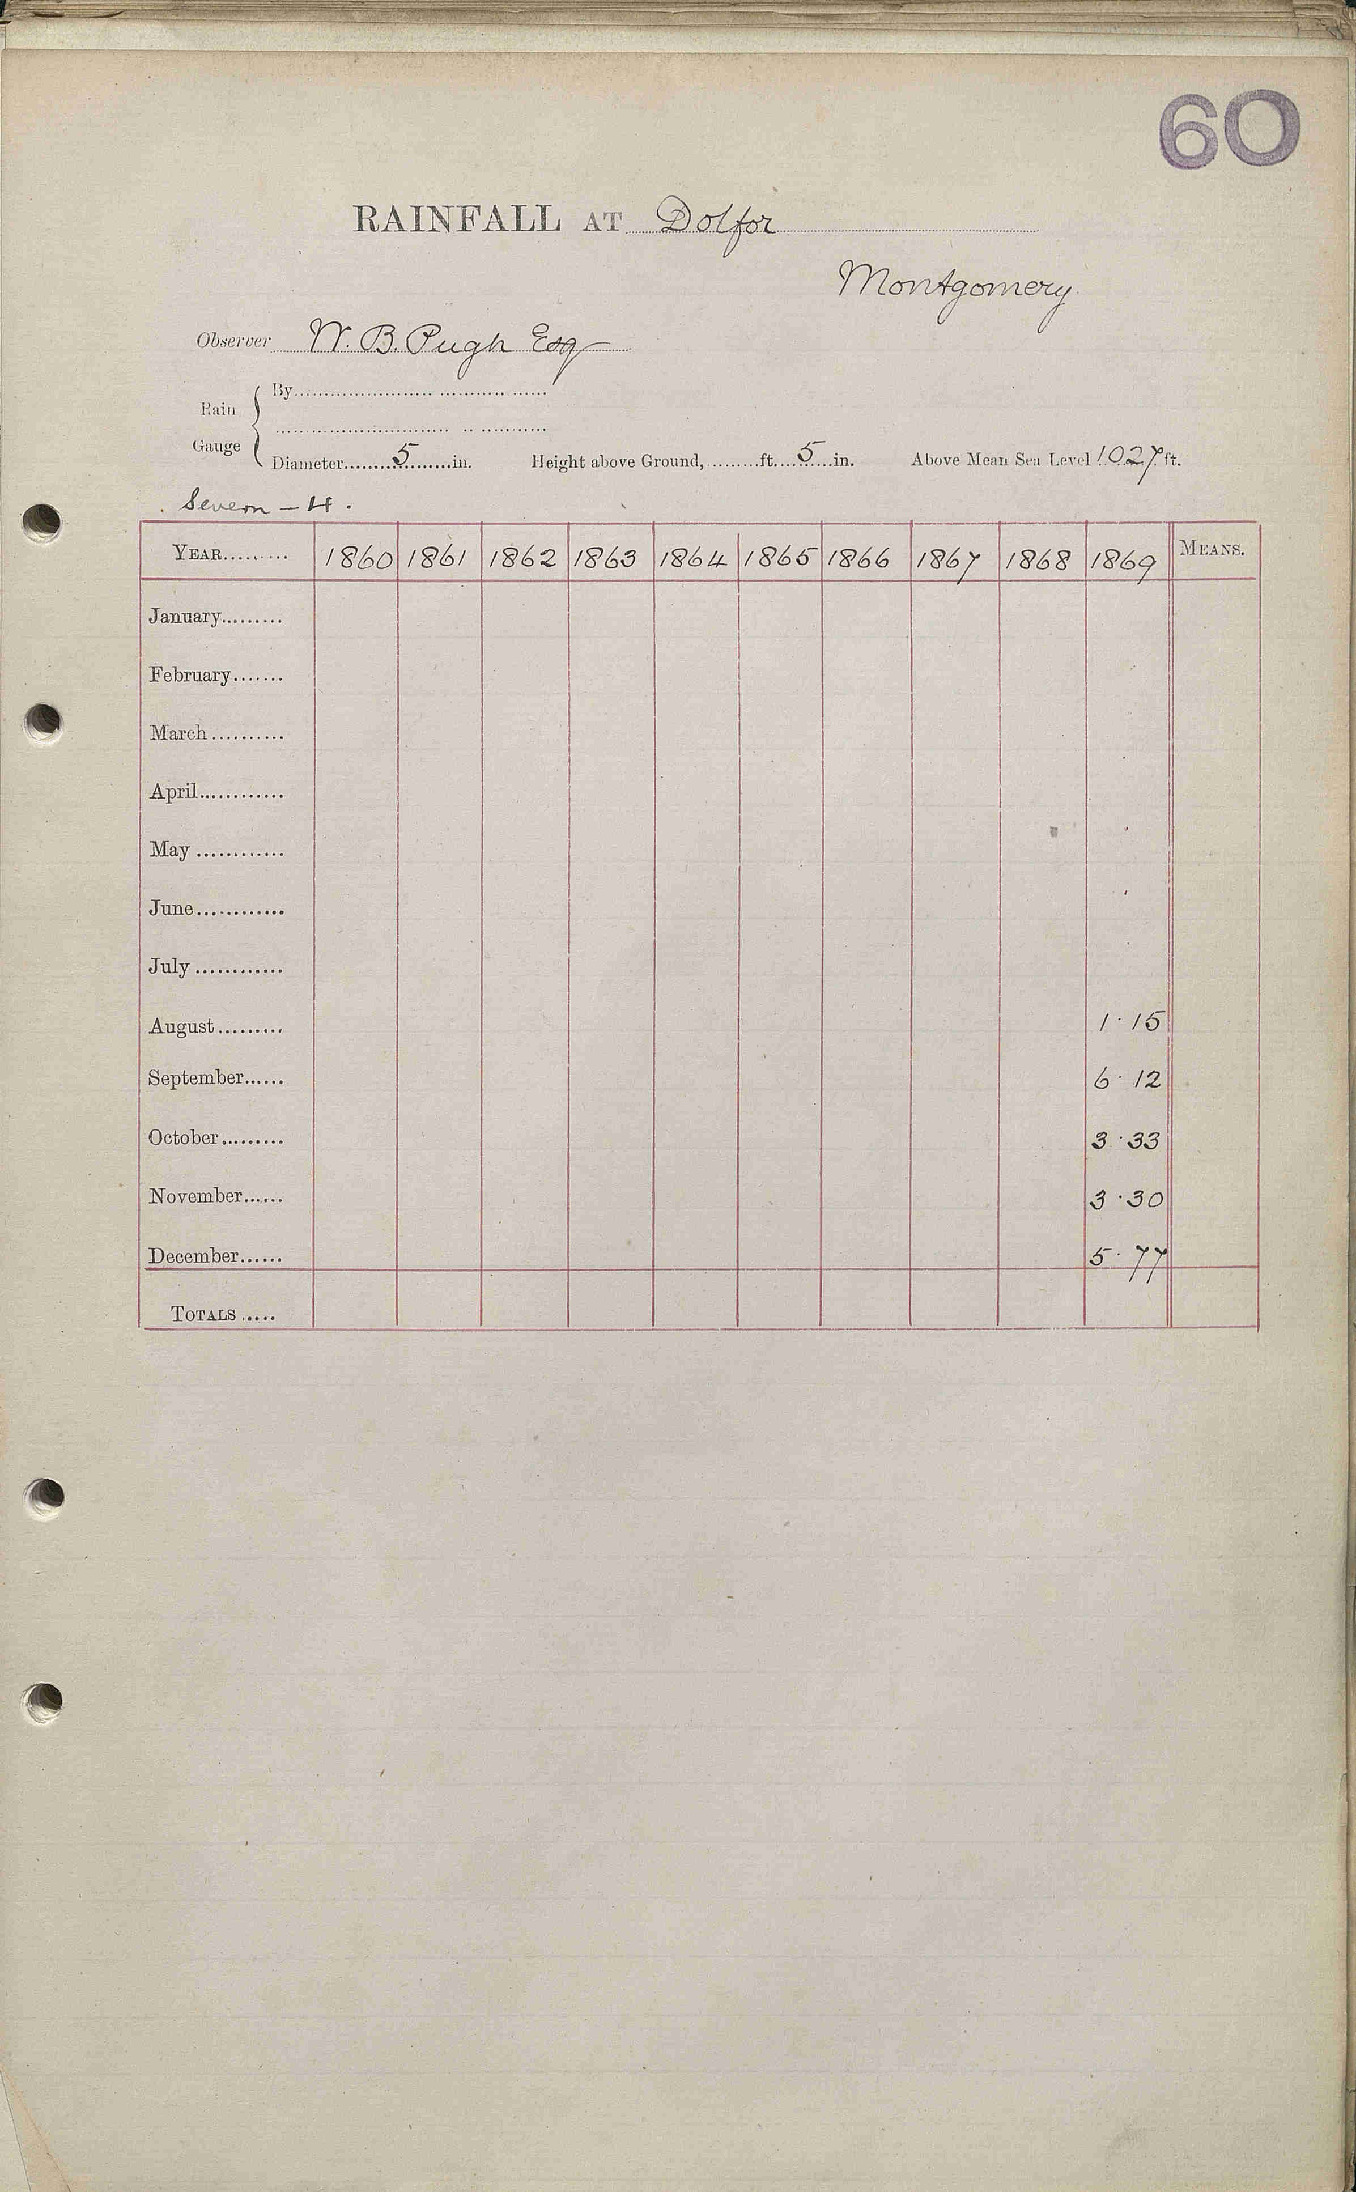 60
RAINFALL AT Dolfor
Montgomery
Observer W. B. Pugh Esq
Rain Gauge { By
Diameter 5 in. Height above Ground, ft. 5 in. Above Mean Sea Level 1027 ft.
Severn – 4.
YEAR 1860 1861 1862 1863 1864 1865 1866 1867 1868 1869 MEANS.
January
February
March
April
May
June
July
August 1.15
September 6.12
October 3.33
November 3.30
December 5.77
TOTALS